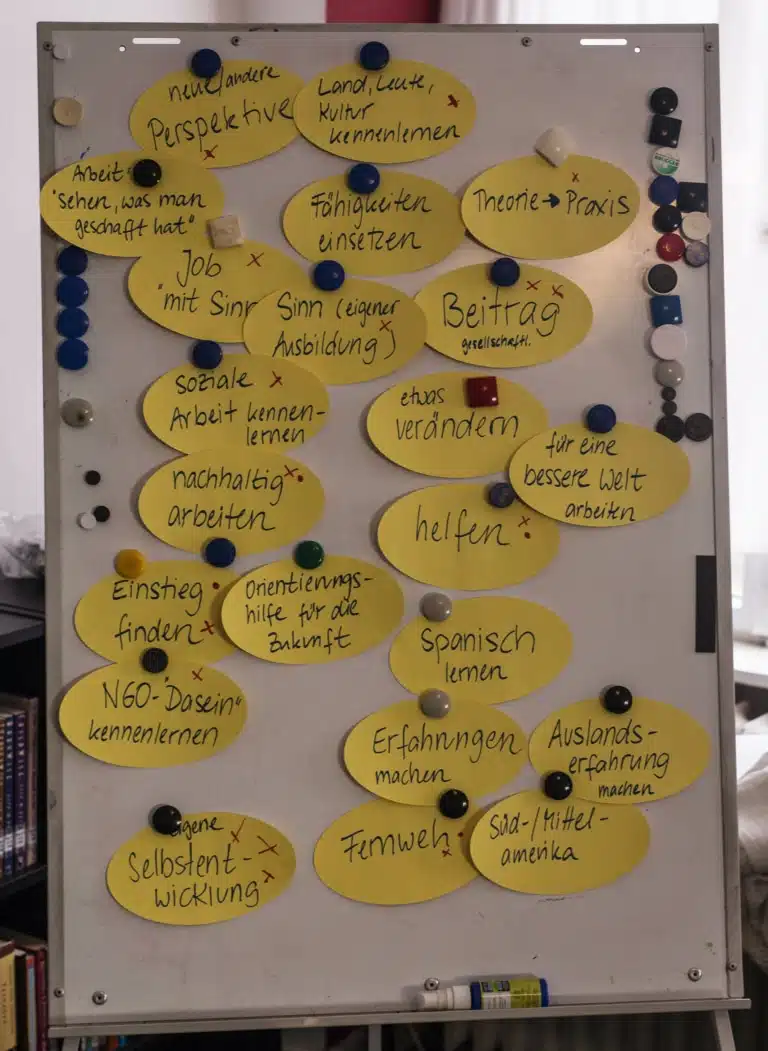 neue/andere
Perspektive
Land, Leute,
Kultur
kennenlernen
Arbeit:
"sehen, was man
geschafft hat"
Fähigkeiten
einsetzen
Theorie → Praxis
Job
"mit Sinn
Sinn (eigener
Ausbildung)
Beitrag
gesellschaftl.
soziale
Arbeit kennen-
lernen
etwas
verändern
für eine
bessere Welt
arbeiten
nachhaltig
arbeiten
helfen
Einstieg
finden
Orientierungs-
hilfe für die
Zukunft
Spanisch
lernen
NGO-"Dasein"
kennenlernen
Erfahrungen
machen
Auslands-
erfahrung
machen
eigene
Selbstent-
wicklung
Fernweh
Süd-/Mittel-
amerika